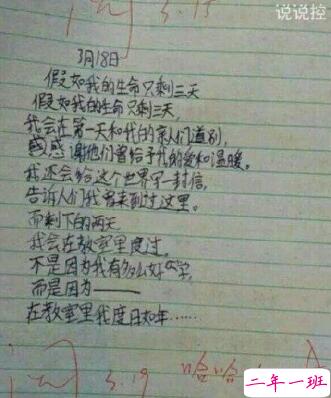 3.15
说说控
3月18日
假如我的生命只剩三天
假如我的生命只剩三天,
我会在第一天和我的亲人们道别,
感谢他们曾给予我的爱和温暖。
我还会给这个世界写一封信,
告诉人们我曾来到过这里。
而剩下的两天
我会在教室里度过。
不是因为我有多么好学,
而是因为——
在教室里我度日如年……
3.19
哈哈
二年一班